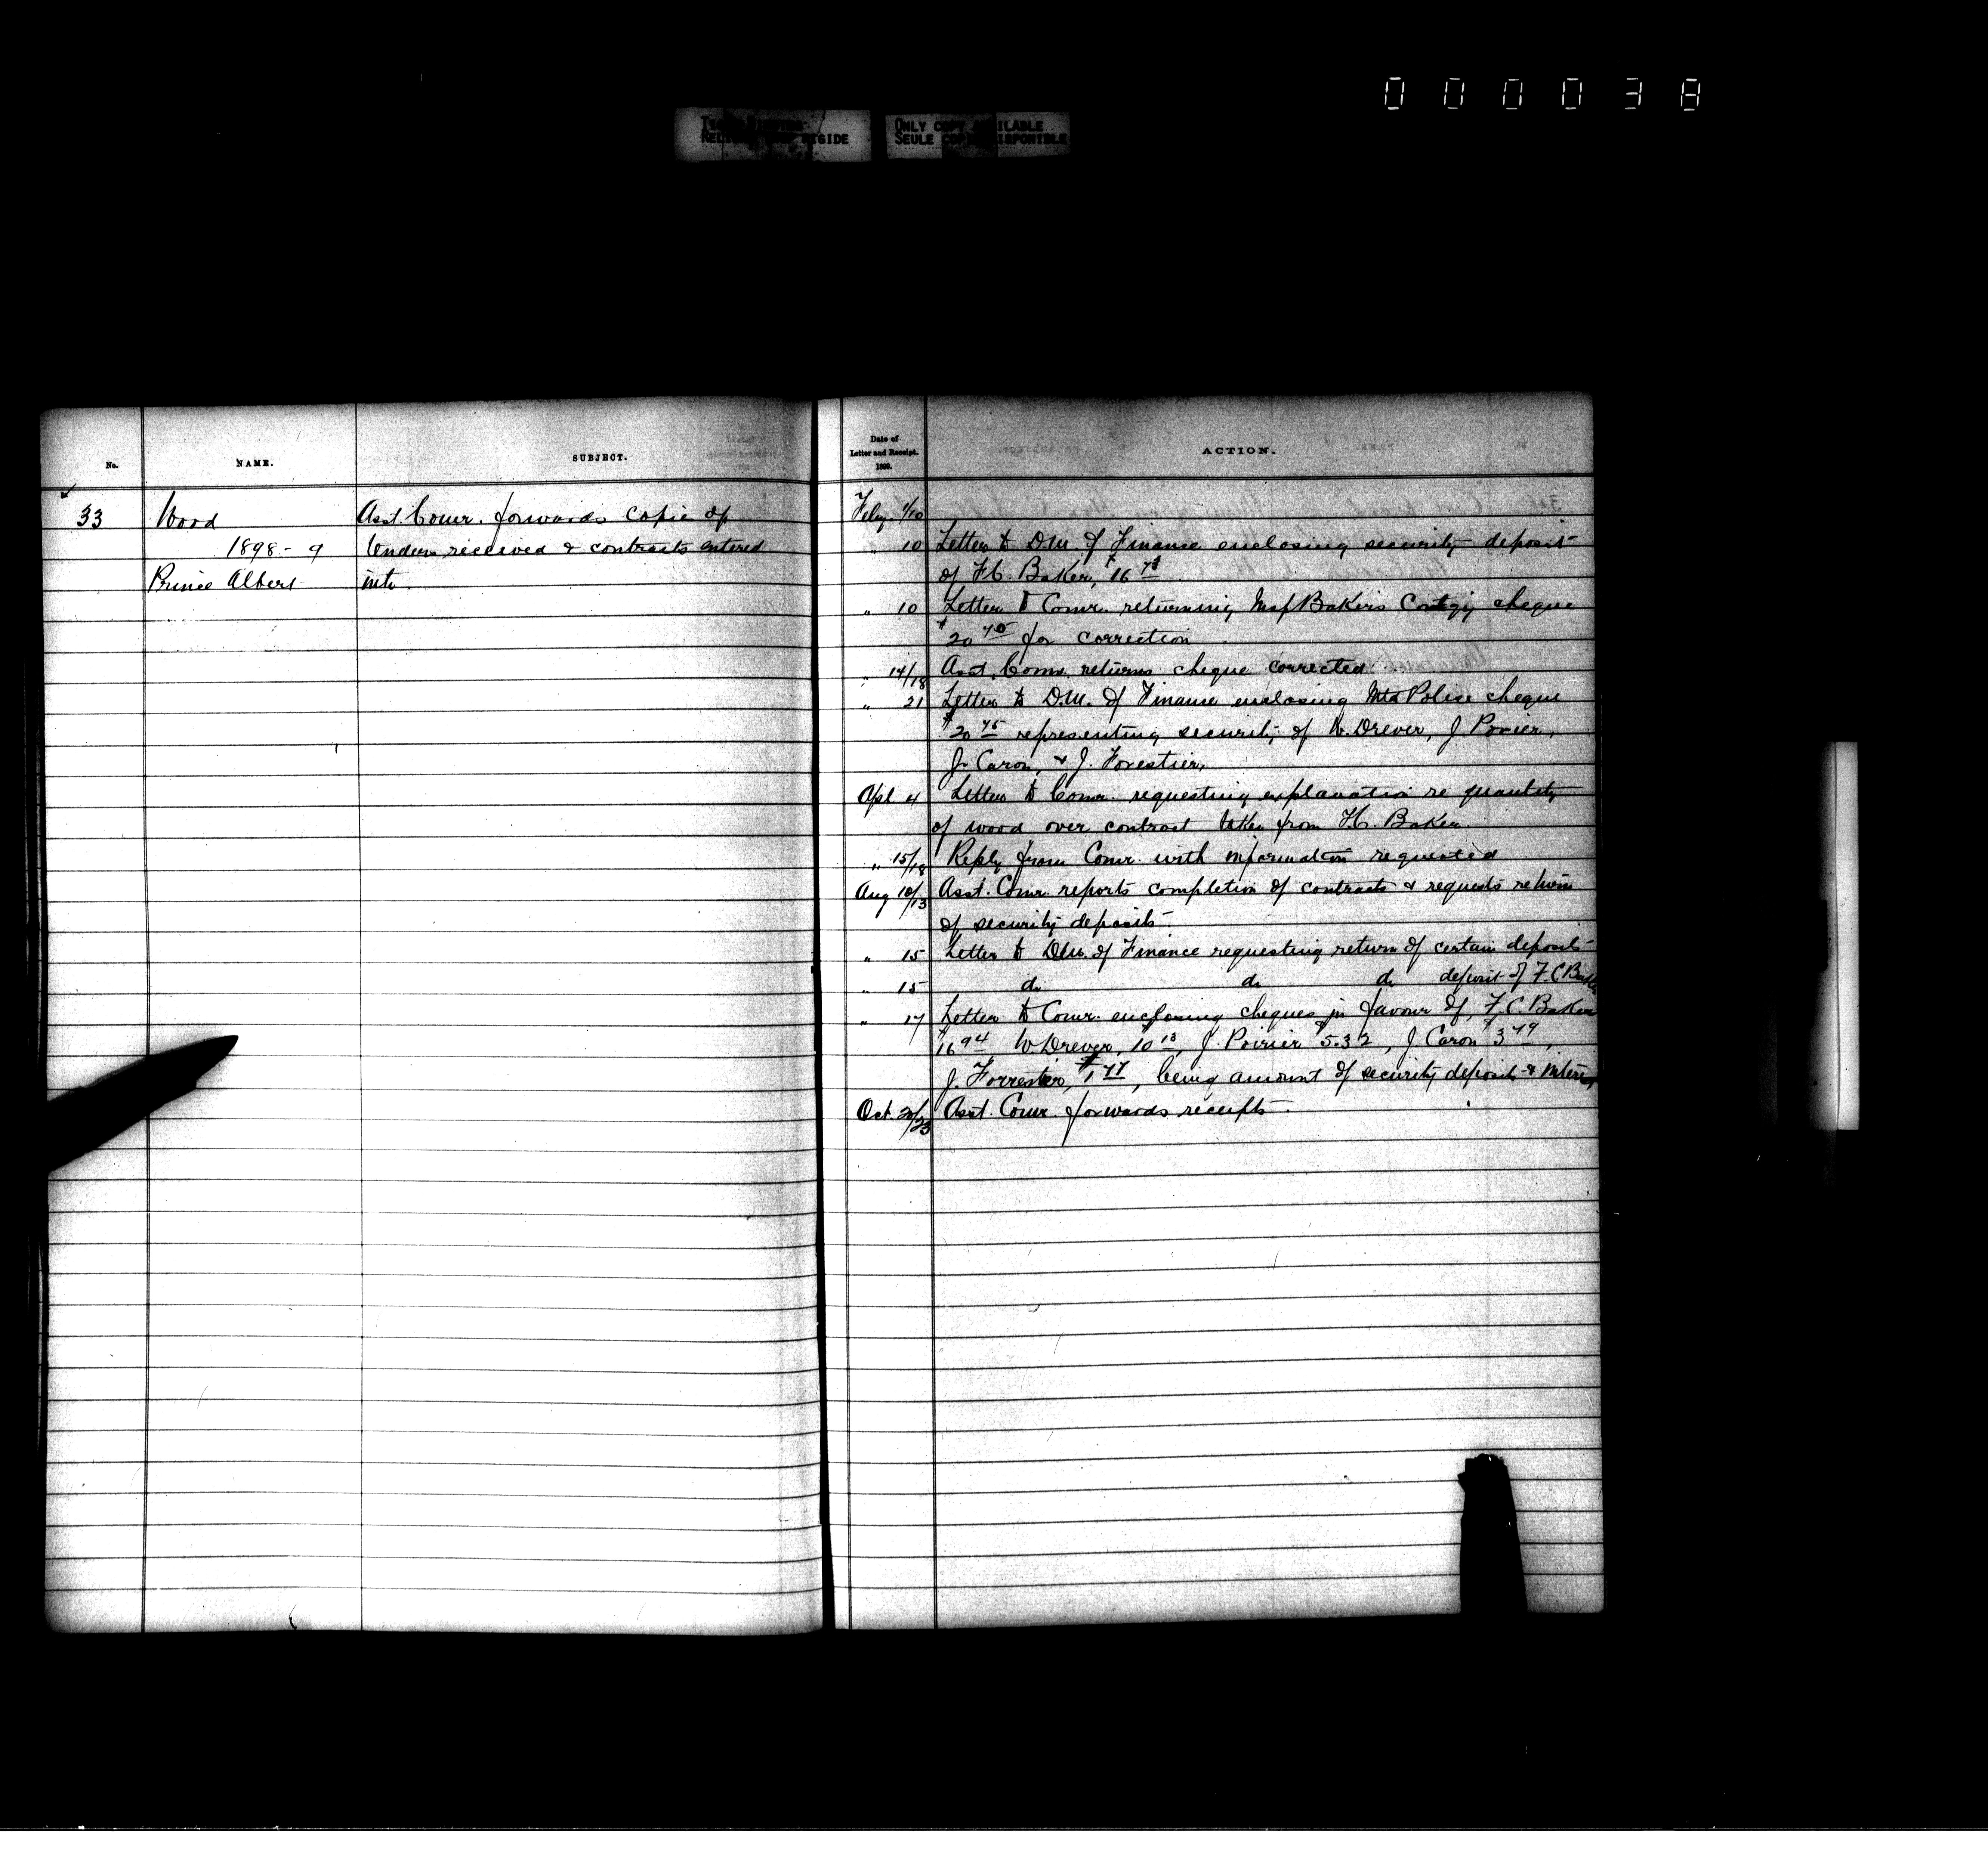 0 0 0 0 3 8
ONLY COPY AVAILABLE
SEULE COPIE DISPONIBLE
No.
NAME.
SUBJECT.
Date of
Letter and Receipt.
1899.
ACTION.
33
Wood
1898-9
Prince Albert
Asst. Comr. forwards copies of
tenders received & contracts entered
into
Feby 1/10
" 10 Letter to D.M. of Finance enclosing security deposit
of F.C. Baker, $16
" 10 Letter to Comr. returning Baker's cheque
$20 75 for correction
" 14/18 Asst. Comr. returns cheque corrected
" 21 Letter to D.M. of Finance enclosing Mtd Police cheque
$20 75 representing security of W. Drever, J. Poirier,
J. Caron, & J. Forestier,
Apl 4 Letter to Comr. requesting explanation re quantity
of wood over contract taken from F.C. Baker
" 15/18 Reply from Comr. with information requested
Aug 10/13 Asst. Comr. reports completion of contracts & requests return
of security deposits
" 15 Letter to D.M. of Finance requesting return of certain deposits
" 15 do do do deposit of F.C. Baker
" 17 Letter to Comr. enclosing cheques in favour of, F.C. Baker
$16 94 W. Drever, 10 13, J. Poirier $5.32, J. Caron $3 49,
J. Forrestier, $1 77, being amount of security deposit & interest
Oct 20/23 Asst. Comr. forwards receipts